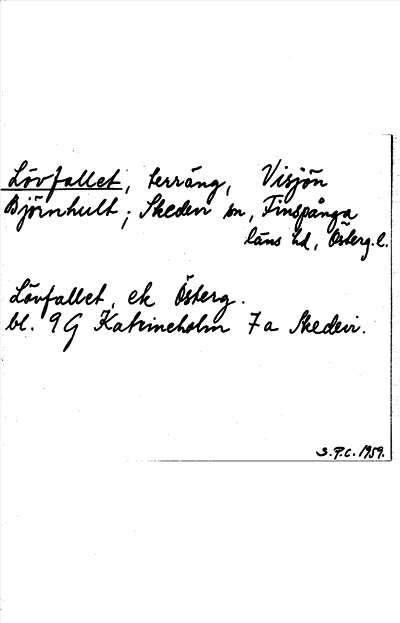 Lövfallet, terräng, Visjön
Björnhult; Skedevi sn, Finspånga
läns hd, Österg. l.
Lövfallet, ek Österg.
bl. 9 G Katrineholm 7a Skedevi.
S.P.C. 1959.